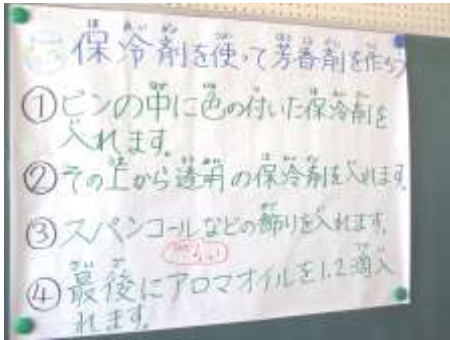 保冷剤を使って芳香剤を作ろう
①ビンの中に色の付いた保冷剤を
入れます。
②その上から透明の保冷剤を入れます。
③スパンコールなどの飾りを入れます。
④最後にアロマオイルを1,2滴入
れます。